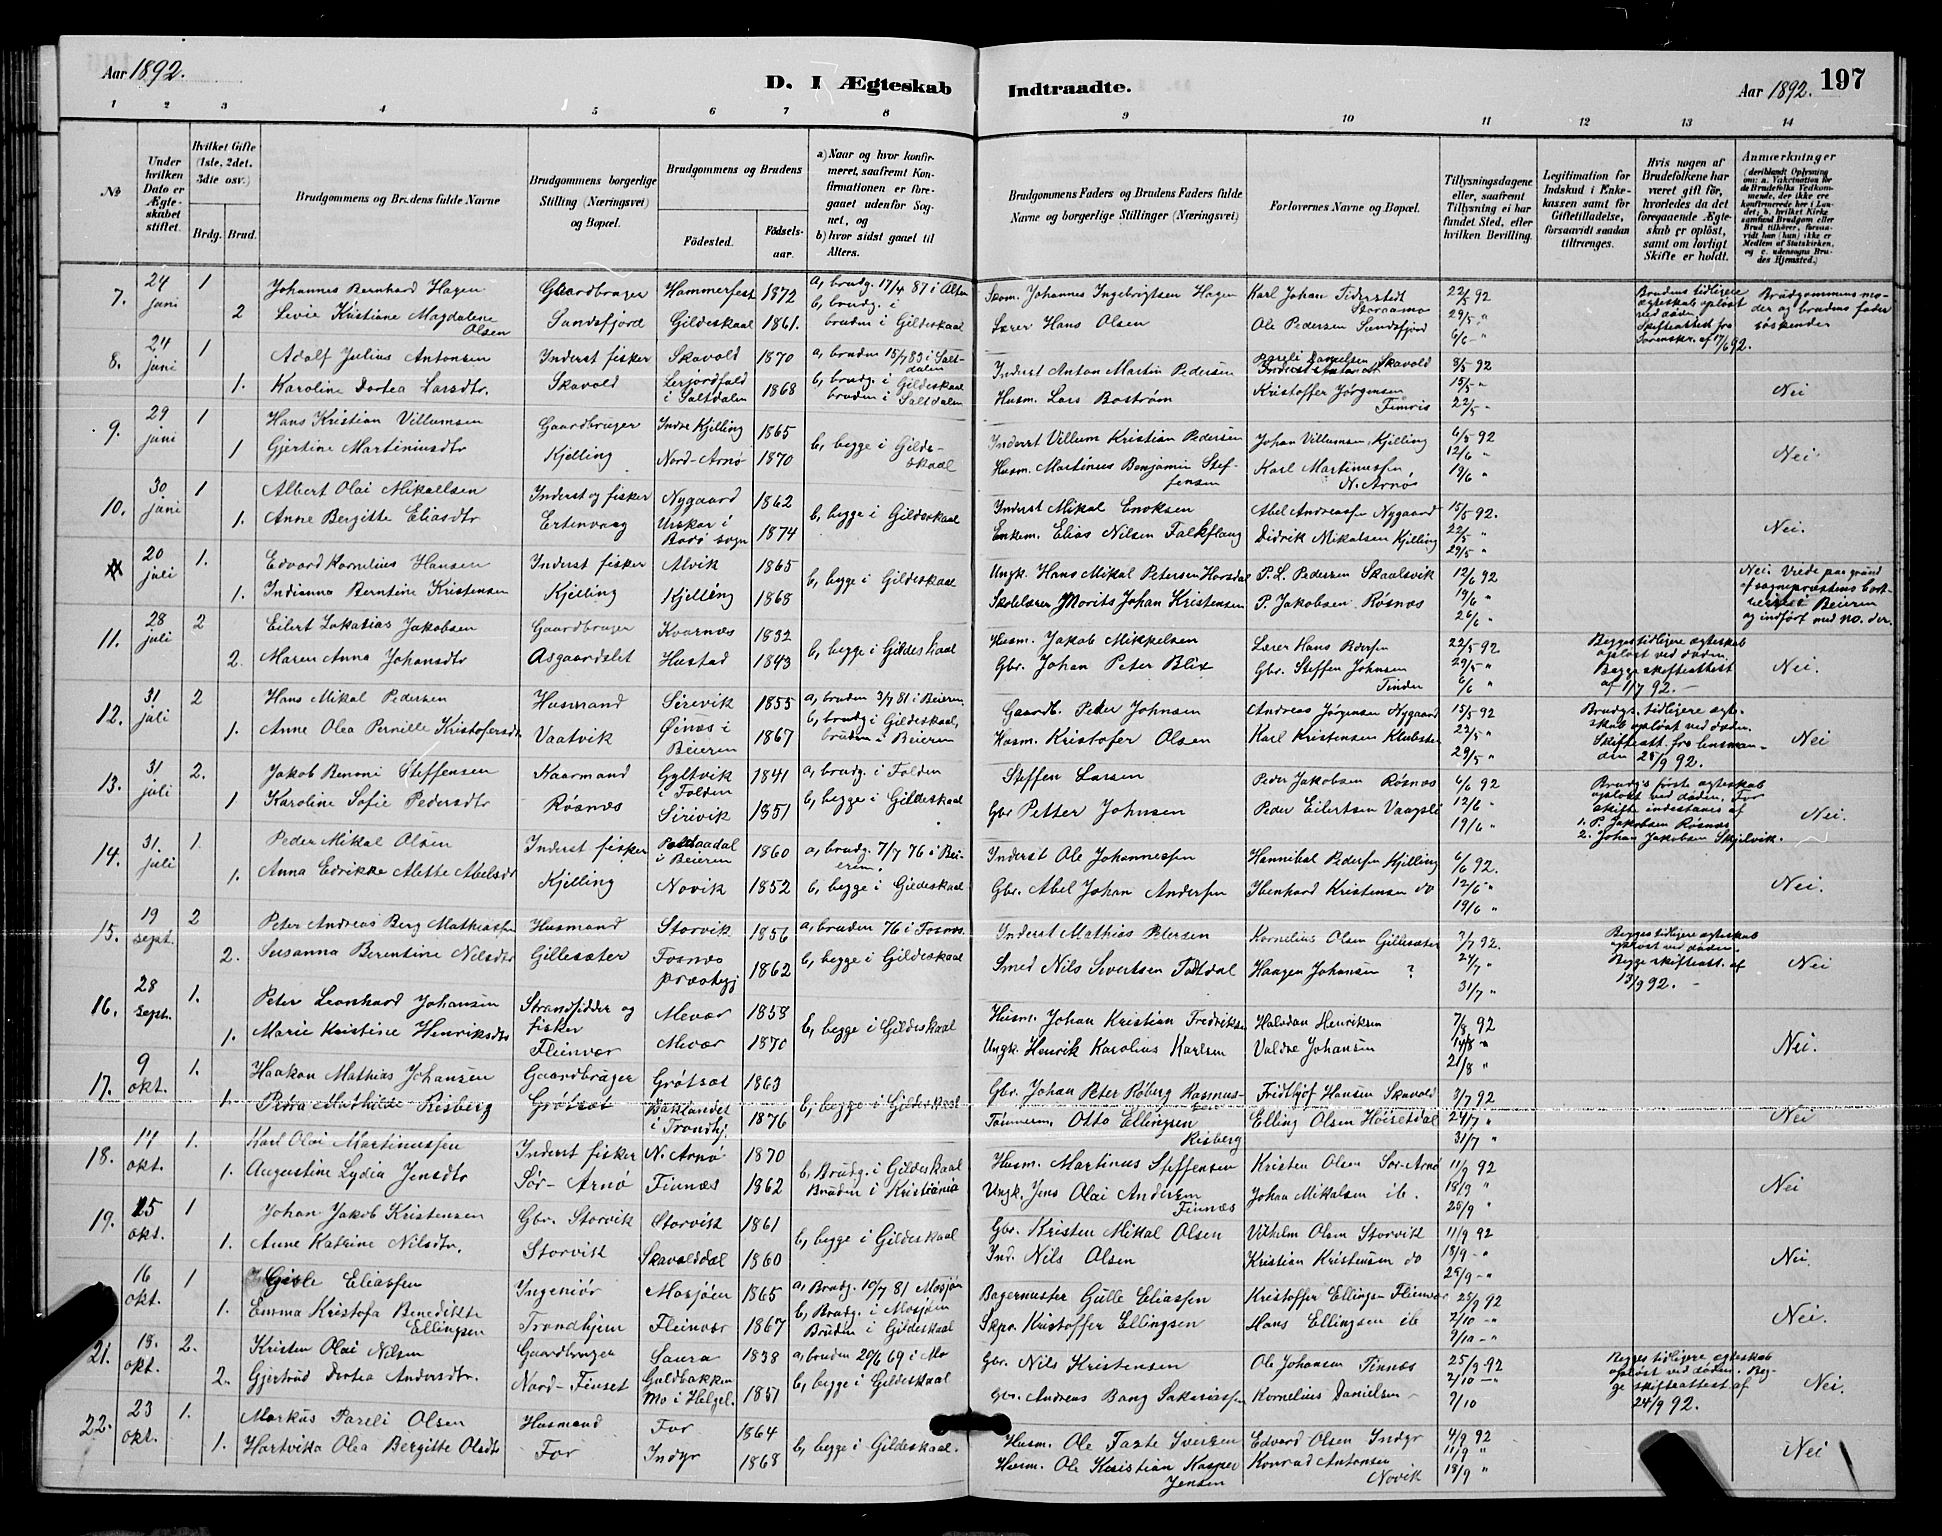 Aar 1892.
D. I Ægteskab Indtraadte.
Aar 1892. 197
1 2 3 4 5 6 7 8 9 10 11 12 13 14
No
Under hvilken Dato er Ægteskabet stiftet.
Hvilket Gifte (1ste, 2det, 3die osv.)
Brdg. Brud.
Brudgommens og Brudens fulde Navne
Brudgommens borgerlige Stilling (Næringsvei) og Bopæl.
Brudgommens og Brudens
Födested.
Födselsaar.
a) Naar og hvor konfirmeret, saafremt Konfirmationen er foregaaet udenfor Sognet, og
b) hvor sidst gaaet til Alters.
Brudgommens Faders og Brudens Faders fulde Navne og borgerlige Stillinger (Næringsvei)
Forlovernes Navne og Bopæl.
Tillysningsdagene eller, saafremt Tillysning ei har fundet Sted, efter hvilken Bevilling.
Legitimation for Indskud i Enkekassen samt för Giftetilladelse, forsaavidt saadan tiltrænges.
Hvis nogen af Brudefolkene har været gift för, hvorledes da det foregaaende Ægteskab er oplöst, samt om lovligt Skifte er holdt.
Anmærkninger (deriblandt Oplysning om: a. Vaktination for de Brudefolks Vedkommende, der ikke ere konfirmerede her i Landet; b. hvilket Kirkesamfund Brudgom eller Brud tilhörer, forsaavidt han (hun) ikke er Medlem af Statskirken, og c. udensogns Brudes Hjemsted.)
7. 24 juni 1 Johannes Bernhard Hagen Gaardbruger Hammerfest 1872 a, brudg. 17/4 87 i Alten Johannes Ingebrigtsen Hagen Karl Johan 22/5 92
2 Levie Kristiane Magdalene Olsen Sandsfjord Gildeskaal 1861. b, brudg. i bruden i Gildeskaal Lærer Hans Olsen Ole Pedersen Sandsfjord 29/5 " 6/6 - "
Brudens tidligere ægteskab opløst ved døden. Skifteattest fra Sorenskr. af 17/6 92.
Brudgommens moder og brudens fader søskender
8. 24 juni 1 Adolf Julius Antonsen Inderst fisker Skavold 1870 a, bruden 15/7 83 i Saltdalen Inderst Anton Martin Pedersen Pareli Danielsen Skavold 8/5 92
1. Karoline Dortea Larsdtr. Skavold i Saltdalen 1868 b, brudg. i Gildeskaal bruden i Saltdalen Husm. Lars Bostrøm Kristoffer Jørgensen 15/5 " 22/5 "
Nei
9. 29 juni 1 Hans Kristian Villumsen Gaardbruger Indre Kjelling 1865 b, begge i Gildeskaal Inderst Villum Kristian Pedersen Johan Villumsen, Kjelling 6/5 92
1 Gjertine Martiniusdtr Kjelling Nord-Arnø 1870 Husm. Martinus Benjamin Steffensen Karl Martinussen, N. Arnøs 12/6 " 19/6 "
Nei
10. 30 juni 1 Albert Olai Mikallsen Inderst og fisker Nygaard 1862 b, begge i Gildeskaal Inderst Mikal Enoksen Abel Andreassen Nygaard 15/5 92.
1. Anne Bergitte Eliasdtr Ertenvaag i Bodø sogn 1874 Enkem. Elias Nilsen Falkflaug Didrik Mikalsen Kjelling 22/5 " 29/5 "
Nei.
20 juli 1. Edvard Kornelius Hansen Inderst fisker Alvik 1865 b, begge i Gildeskaal Ungk. Hans Mikal Petersen Horsdal P. L. Pedersen Skaalsvik 12/6 92
1. Indianna Berntine Kristensen Kjelling Kjelling 1868 Skolelærer Morits Johan Kristensen P. Jakobsen Røsnæs 19/6 " 26/6 "
Nei. Viede paa grund af sogneprestens i Beieren og indført med no. der.
11. 28 juli 2 Eilert Sakasias Jakobsen Gaardbruger Kvarnæs 1832 b, begge i Gildeskaal Husm. Jakob Mikkelsen Lærer Hans Pedersen 22/5 92
2. Maren Anna Johansdtr Asgaardslet Hustad 1843 Gbr. Johan Peter Blix Gbr. Steffen Johnsen 29/5 " 6/6 "
Begges tidligere ægteskab opløst ved døden. Begge skifteattest af 1/7 92. -
Nei.
12. 31 juli 2 Hans Mikal Pedersen Husmand Sørevik 1855 a, bruden 3/7 81 i Beieren. Gaardb. Peder Johnsen Andreas Jørgensen Nygaard 15/5 92
1. Anne Olea Pernille Kristofersdtr Vaatvik i Beieren 1867 b, brudg i Gildeskaal, bruden i Beieren Husm. Kristofer Olsen Karl Kristensen 22/5 " 29/5 "
Brudg. tidligere ægteskab opløst ved døden. Skifteatt. fra lensmanden 28/9 92.
Nei
13. 31 juli 2. Jakob Benoni Steffensen Kaarmand Gyltvik i Folden 1841 a, brudg. i Folden Steffen Larsen Peder Jakobsen Røsnæs 6/6 92
1 Karoline Sofie Pedersdtr Røsnæs Sirivik 1851 b, begge i Gildeskaal Gbr Petter Johnsen Peder Eilertsen 12/6 " 19/6 "
Brudg's første ægteskab opløst ved døden. For skifte indestaaes af 1. P. Jakobsen Røsnæs 2. Johan Jakobsen Skjelvik.
Nei.
14. 31. juli 1. Peder Mikal Olsen Inderst fisker i Beieren 1860 a, brudg. 7/7 76 i Beieren. Inderst Ole Johannessen Hannibal Pedersen Kjelling 6/6 92.
1. Anna Edrikke Alette Abelsdtr Kjelling Novik 1852 b, begge i Gildeskaal Gbr. Abel Johan Andersen Ibenhard Kristensen do 12/6 " 19/6 "
Nei.
15. 19 sept. 2 Peter Andreas Berg Mathiassen Husmand Storvik 1856 a, bruden 76 i Fosnes. Inderst Mathias Petersen Kornelius Olsen Gillesæter 7/7 92.
2. Susanna Berentine Nilsdtr Gillesæter Fosnes præstegj 1862 b, begge i Gildeskaal Smed Nils Sivertsen Haagen Johansen ? 24/7 " 31/7 "
Begges tidligere ægteskab opløst ved døden. Begge skifteatt. af 13/9 92. -
Nei
16. 28 sept. 1. Peter Leonhard Johansen Strandsidder og fisker Mevær 1858 b, begge i Gildeskaal Husm. Johan Kristian Fredriksen Halvdan Henriksen 7/8 92
1. Marie Kristine Henriksdtr Fleinvær Mevær 1870 Ungk. Henrik Karolius Karlsen Valdre Johansen 14/8 " 21/8 "
Nei.
17. 9 okt. 1. Haakon Mathias Johansen Gaardbruger Grøtsæt 1863 b, begge i Gildeskaal Gbr. Johan Peter Røberg Rasmussen Fridthjof Hansen Skavold 3/7 92
1. Petra Mathilde Risberg Grøtsæt Baklandet i Trondhj. 1876 Tømmerm. Otto Ellingsen Risberg Elling Olsen 24/7 " 31/7 "
Nei
18. 14 okt. 1. Karl Olai Martinussen Inderst fisker N. Arnø 1870 b, Brudg. i Gildeskaal Husm. Martinus Steffensen Kristen Olsen Sør-Arnø 11/9 92
1. Augustine Lydia Jensdtr Sør-Arnø Finnæs 1862 Bruden i Kristiania Ungk. Jens Olai Andersen Finnæs Johan Mikalsen ib. 18/9 " 25/9 "
Nei
19. 15 okt. 1 Johan Jakob Kristensen Gbr. Storvik Storvik 1861 b, begge i Gildeskaal Gbr. Kristen Mikal Olsen Vilhelm Olsen Storvik 11/9 92
1. Anne Katrine Nilsdtr. Storvik Skavolddal 1860 Ind. Nils Olsen Kristian Kristensen do 18/9 - " 25/9 - "
Nei.
16 okt. 1 Gisle Eliassen Ingeniør Mosjøen 1865 a, Brudg. 10/7 81 Mosjøen Bagermester Gulle Eliassen Kristoffer Ellingsen Fleinvær 25/9 92
1. Emma Kristofa Benedikte Ellingsen Trondhjem Fleinvær 1867 b, Brudg. i Mosjøen Bruden i Gildeskaal Skpr. Kristoffer Ellingsen Hans Ellingsen ib 2/10 - " 9/10 - "
Nei.
21. 18. okt. 2. Kristen Olai Nilsen Gaardbruger Saura 1838 a, bruden 20/6 69 i Mo Gbr. Nils Kristensen Ole Johansen Finnæs 25/9 92
2. Gjertrud Dortea Andersdtr. Nord-Finset Guldbakken Mo i Helgel. 1851 b, begge i Gildeskaal Gbr. Andreas Bang Sakariassen Kornelius Danielsen - 2/10 - " 9/10
Begges tidligere ægteskab opløst ved døden. Begge skifteattest af 24/9 92.
Nei.
22. 23 okt. 1. Markus Pareli Olsen Husmand For 1864 b, begge i Gildeskaal. Husm. Ole Taxte Iversen Edvard Olsen Indyr 4/9 92
1. Hartvikka Olea Bergitte Olsdtr For Indyr 1868 Husm. Ole Kristian Kasper Jensen Konrad Antonsen Novik 11/9 " 18/9 "
Nei